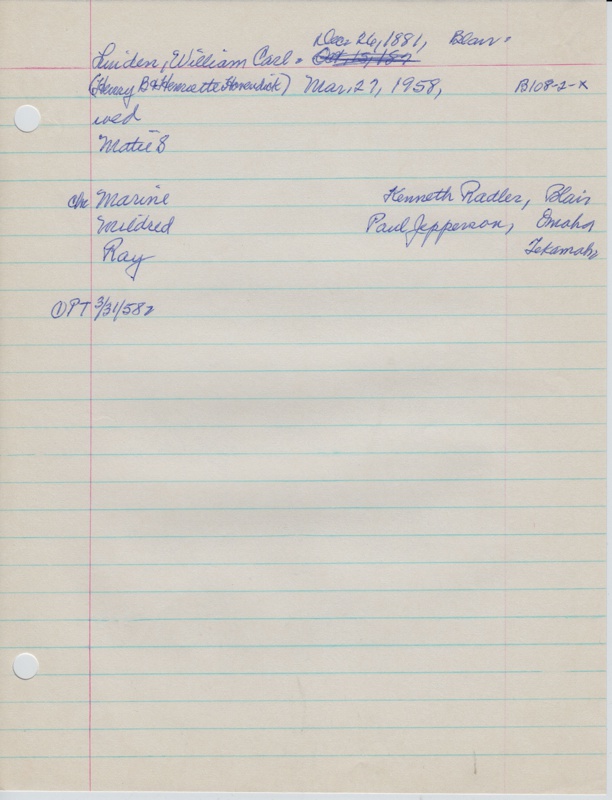 Dec 26, 1881, Blair
Linden, William Carl = Oct, 15, 187
(Henry B & Henriette Hovendick) Mar, 27, 1958, B108-2-X
wed
Matie S
ch Marine Kenneth Radler, Blair
Mildred Paul Jepperson, Omaha
Ray Tekamah
① PT 3/31/58 2